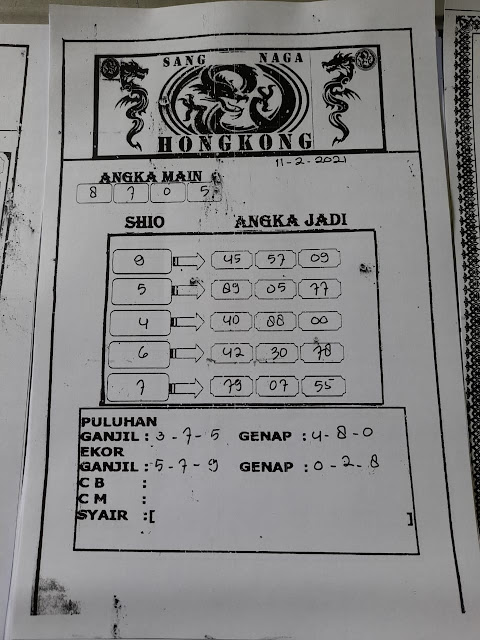 SANG NAGA
HONGKONG
11-2-2021
ANGKA MAIN
8 7 0 5
SHIO ANGKA JADI
9 45 57 09
5 89 05 77
4 40 88 00
6 42 30 78
7 79 07 55
PULUHAN
GANJIL : 3-7-5 GENAP : 4-8-0
EKOR
GANJIL : 5-7-9 GENAP : 0-2-8
C B :
C M :
SYAIR :[ ]